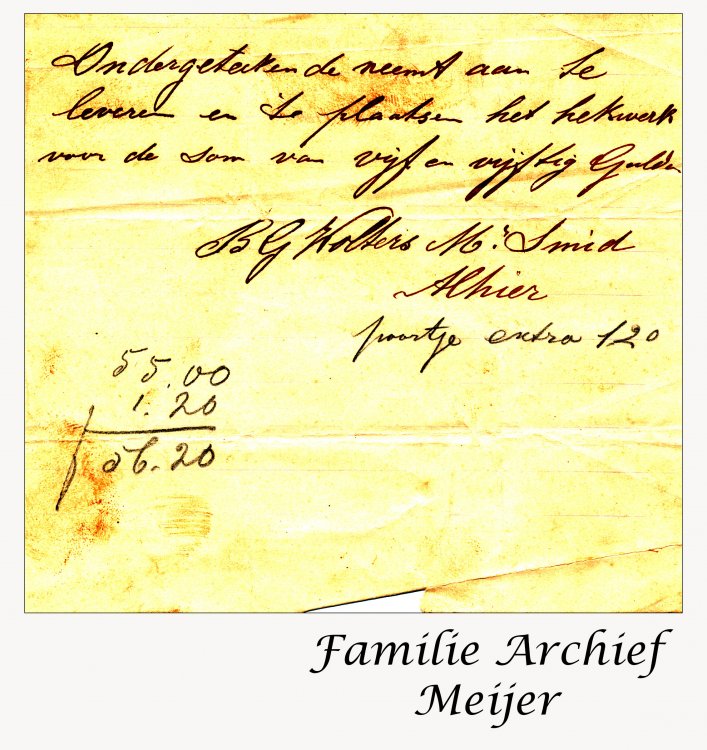 Ondergeteekende neemt aan te
leveren en te plaatsen het hekwerk
voor de som van vijf en vijftig Gulden
B G Wolters Mr. Smid
Alhier
poortje extra 120
55.00
1.20
f 56.20
Familie Archief
Meijer